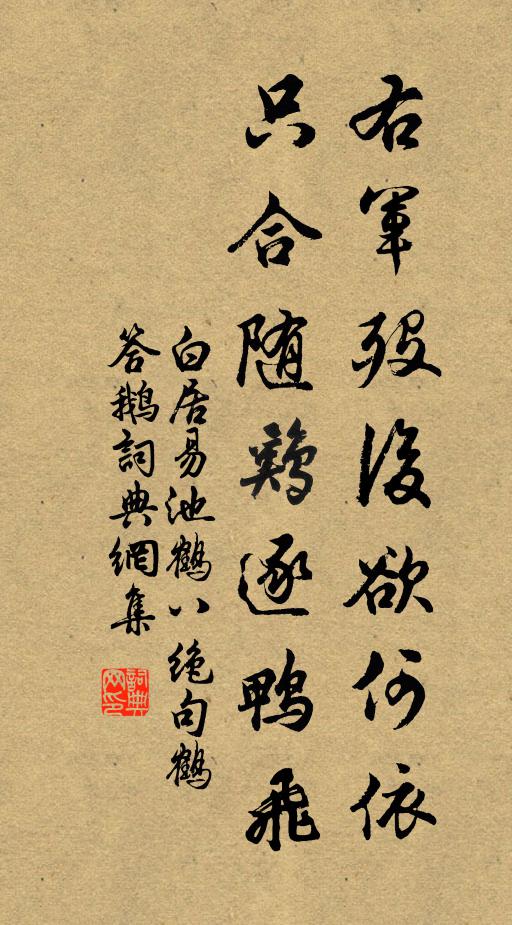 右軍歿後欲何依
只合随鶏逐鴨飛
白居易池鶴八绝句鶴
答鵝詞典網集
詞典网印